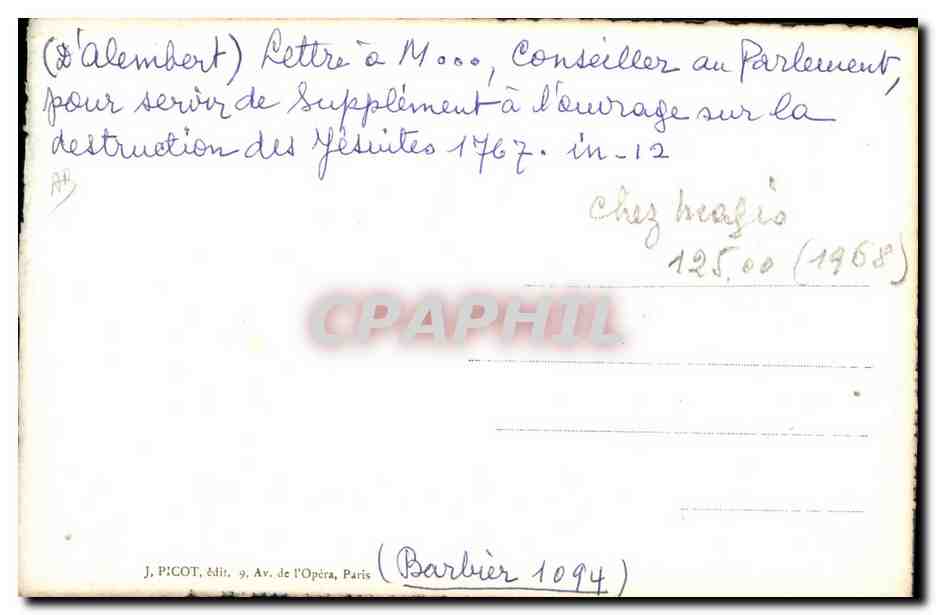 (D'Alembert) Lettre à M°°°, Conseiller au Parlement,
pour servir de Supplément à l'ouvrage sur la
destruction des Jésuites 1767. in-12
AB
chez Magis
125,00 (1968)
CPAPHIL
J. PICOT, édit. 9, Av. de l'Opéra, Paris (Barbier 1094)